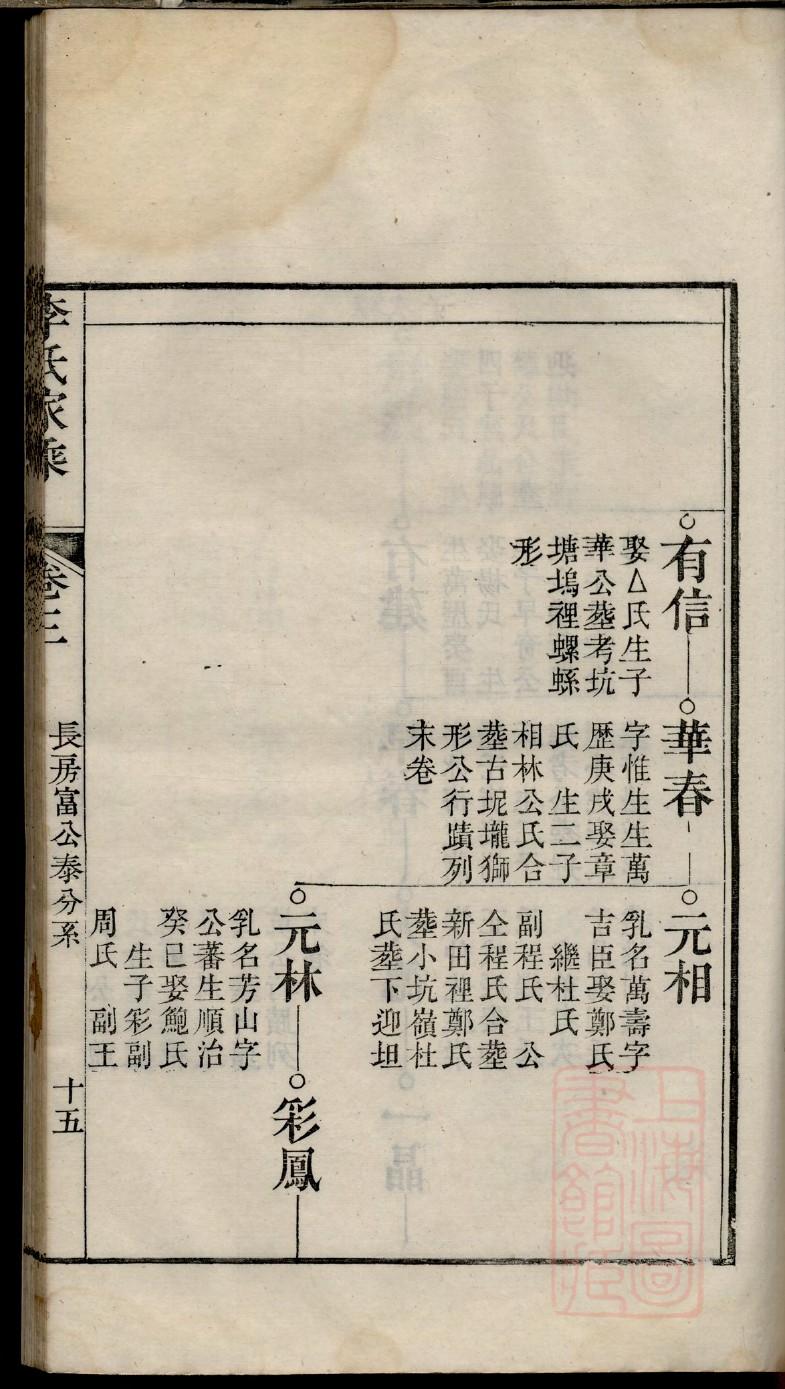 有信
娶厶氏生子
華公塟考坑
塘塢裡螺螄
形
華春
字惟生生萬
歷庚戌娶章
氏　生二子
相林公氏合
塟古坭壠獅
形公行蹟列
末卷
元相
乳名萬壽字
吉臣娶鄭氏
繼杜氏
副程氏　公
仝程氏合塟
新田裡鄭氏
塟小坑嶺杜
氏塟下迎坦
元林
乳名芳山字
公蕃生順治
癸巳娶鮑氏
生子彩副
周氏　副王
彩鳳
李氏家乘
卷三
長房富公泰分系
十五
上海圖
書館藏